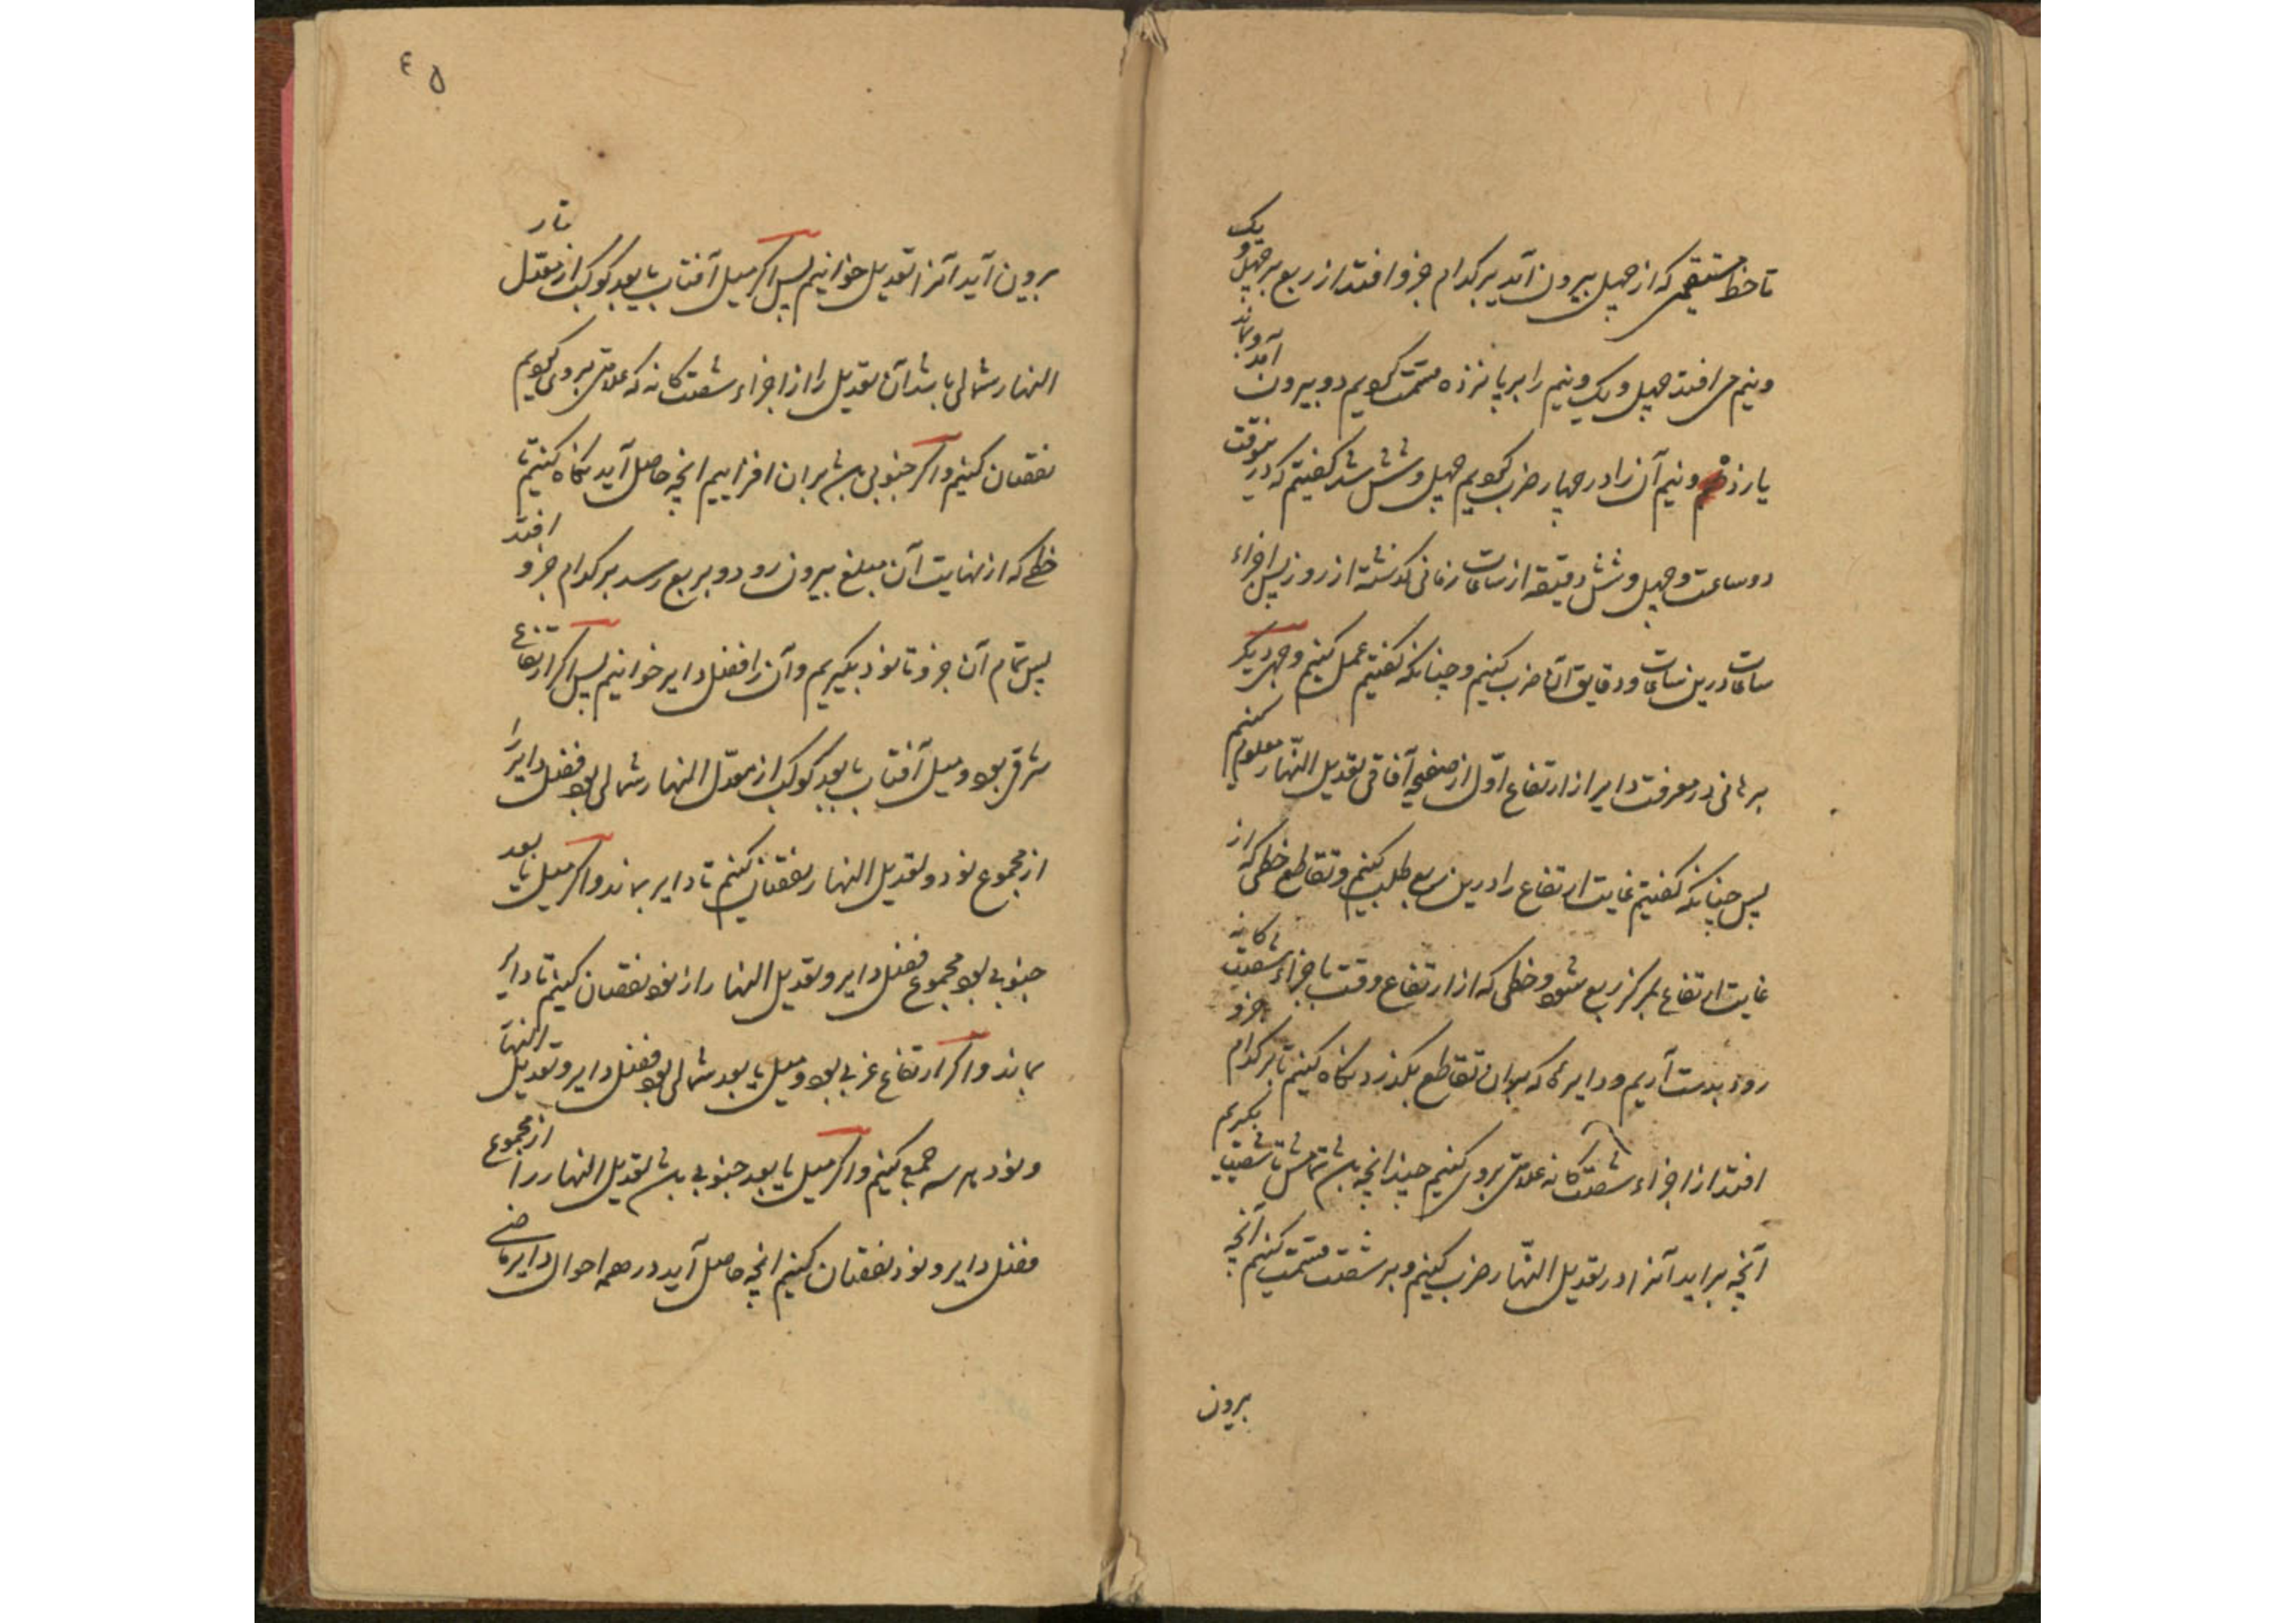 تا خط مستقیمی که از چهل بیرون آید بر کدام جزو افتد از ربع بر چهل و یک
و نیم می افتد چهل و یک و نیم را بر پانزده قسمت کردیم دو بیرون آمد و بماند
یازده و نیم آن را در چهار ضرب کردیم چهل و شش شد گفتیم که درین وقت
دو ساعت و چهل و شش دقیقه از ساعات زمانی گذشته از روز پس اجزاء
ساعات درین ساعات و دقایق آن ضرب کنیم و چنانکه گفتیم عمل کنیم وجهی دیگر
برهانی در معرفت دایر از ارتفاع اوّل از صفیحه آفاقی تعدیل النّهار معلوم کنیم
پس چنانکه گفتیم غایت ارتفاع را درین ربع طلب کنیم و تقاطع خطی که از
غایت ارتفاع بمرکز ربع شود و خطی که از ارتفاع وقت با جزاء شصت گانه
رود بدست آریم و دایره که بران تقاطع بگذرد نگاه کنیم تا بر کدام جزو
افتد از اجزاء شصت گانه علامتی بروی کنیم چندانچه باشد تمامش تا شصت بگیریم
آنچه براید آنرا در تعدیل النّهار ضرب کنیم و بر شصت قسمت کنیم آنچه
برون
٤٥
برون آید آنرا تعدیل خوانیم پس اگر میل آفتاب یا بعد کوکب از معدّل
النهار شمالی باشد آن تعدیل را از اجزاء شصت گانه که علامتی بروی کردیم
نقصان کنیم و اگر جنوبی باشد بران افزاییم آنچه حاصل آید نگاه کنیم تا
خطی که از نهایت آن مبلغ بیرون رود و بربع رسد بر کدام جزو افتد
پس تمام آن جزو تا نود بگیریم و آن را فضل دایر خوانیم پس اگر ارتفاع
شرقی بود و میل آفتاب یا بعد کوکب از معدّل النهار شمالی بود فضل دایر را
از مجموع نود و تعدیل النهار نقصان کنیم تا دایر بماند و اگر میل یا بعد
جنوبی بود مجموع فضل دایر و تعدیل النهار را از نود نقصان کنیم تا دایر
بماند و اگر ارتفاع غربی بود و میل یا بعد شمالی بود فضل دایر و تعدیل النهار
و نود هر سه جمع کنیم و اگر میل یا بعد جنوبی باشد تعدیل النهار را از مجموع
فضل دایر و نود نقصان کنیم آنچه حاصل آید در همه احوال دایر ماضی